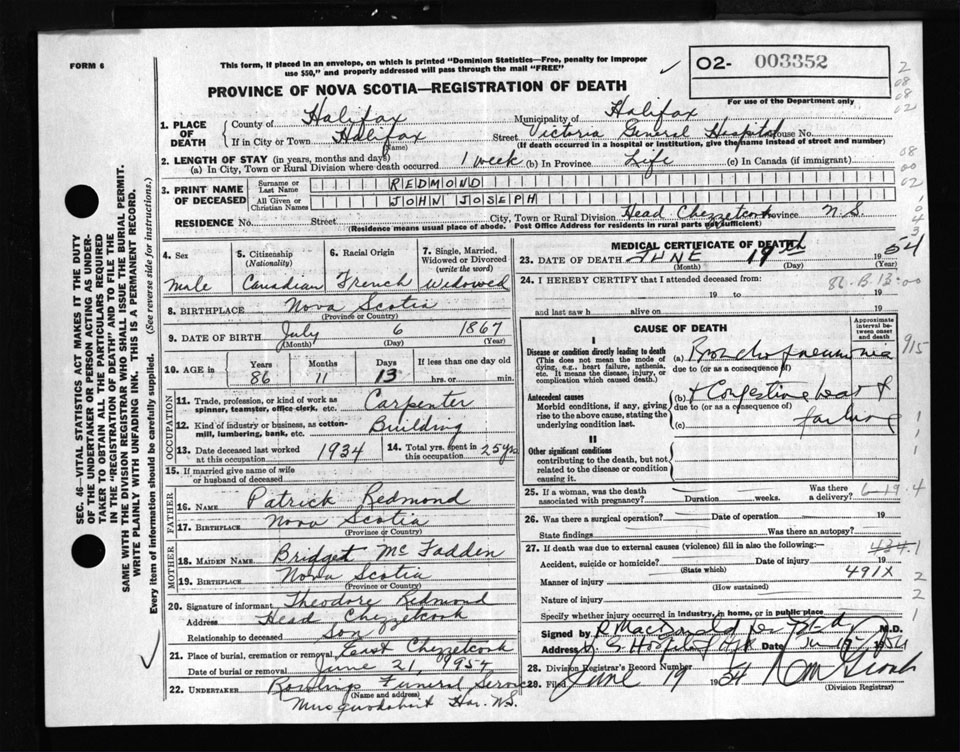 FORM 6
This form, if placed in an envelope, on which is printed "Dominion Statistics—Free, penalty for improper
use $50," and properly addressed will pass through the mail "FREE"
02- 003352
For use of the Department only
PROVINCE OF NOVA SCOTIA—REGISTRATION OF DEATH
1. PLACE OF DEATH
County of Halifax Municipality of Halifax
If in City or Town Halifax Street Victoria General Hospital House No.
(Name) (If death occurred in a hospital or institution, give the name instead of street and number)
2. LENGTH OF STAY (in years, months and days)
(a) In City, Town or Rural Division where death occurred 1 week (b) In Province Life (c) In Canada (if immigrant)
3. PRINT NAME OF DECEASED
Surname or Last Name REDMOND
All Given or Christian Names JOHN JOSEPH
RESIDENCE No. Street City, Town or Rural Division Head Chezzetcook Province N.S.
(Residence means usual place of abode. Post Office Address for residents in rural parts not sufficient)
4. Sex
male
5. Citizenship (Nationality)
Canadian
6. Racial Origin
French
7. Single, Married, Widowed or Divorced (write the word)
Widowed
8. BIRTHPLACE Nova Scotia
(Province or Country)
9. DATE OF BIRTH July 6 1867
(Month) (Day) (Year)
10. AGE in Years 86 Months 11 Days 13 If less than one day old hrs. or min.
OCCUPATION
11. Trade, profession, or kind of work as spinner, teamster, office clerk, etc. Carpenter
12. Kind of industry or business, as cotton-mill, lumbering, bank, etc. Building
13. Date deceased last worked at this occupation 1934
14. Total yrs. spent in this occupation 25 yrs
15. If married give name of wife or husband of deceased
FATHER
16. NAME Patrick Redmond
17. BIRTHPLACE Nova Scotia
(Province or Country)
MOTHER
18. MAIDEN NAME Bridget McFadden
19. BIRTHPLACE Nova Scotia
(Province or Country)
20. Signature of informant Theodore Redmond
Address Head Chezzetcook
Relationship to deceased Son
21. Place of burial, cremation or removal East Chezzetcook
Date of burial or removal June 21 1954
22. UNDERTAKER Rowlings Funeral Service
(Name and address)
Musquodoboit Har. N.S.
MEDICAL CERTIFICATE OF DEATH
23. DATE OF DEATH JUNE 19th 1954
(Month) (Day) (Year)
24. I HEREBY CERTIFY that I attended deceased from:
19 to 19
and last saw h alive on 19
CAUSE OF DEATH
Approximate interval between onset and death
I
Disease or condition directly leading to death
(This does not mean the mode of dying, e.g., heart failure, asthenia, etc. It means the disease, injury, or complication which caused death.)
(a) Bronchopneumonia
due to (or as a consequence of)
Antecedent causes
Morbid conditions, if any, giving rise to the above cause, stating the underlying condition last.
(b) + Congestive heart
due to (or as a consequence of)
(c) failure
II
Other significant conditions
contributing to the death, but not related to the disease or condition causing it.
25. If a woman, was the death associated with pregnancy? Duration weeks. Was there a delivery?
26. Was there a surgical operation? Date of operation 19
State findings Was there an autopsy?
27. If death was due to external causes (violence) fill in also the following:—
Accident, suicide or homicide? Date of injury 19
(State which)
491X
Manner of injury
(How sustained)
Nature of injury
Specify whether injury occurred in industry, in home, or in public place
Signed by M.D.
Address Date
28. Division Registrar's Record Number
29. Filed June 19 1954
(Division Registrar)
SEC. 46—VITAL STATISTICS ACT MAKES IT THE DUTY
OF THE UNDERTAKER OR PERSON ACTING AS UNDER-
TAKER TO OBTAIN ALL THE PARTICULARS REQUIRED
IN THE "REGISTRATION OF DEATH" AND TO FILE THE
SAME WITH THE DIVISION REGISTRAR WHO SHALL ISSUE THE BURIAL PERMIT.
WRITE PLAINLY WITH UNFADING INK. THIS IS A PERMANENT RECORD.
Every item of information should be carefully supplied. (See reverse side for instructions.)